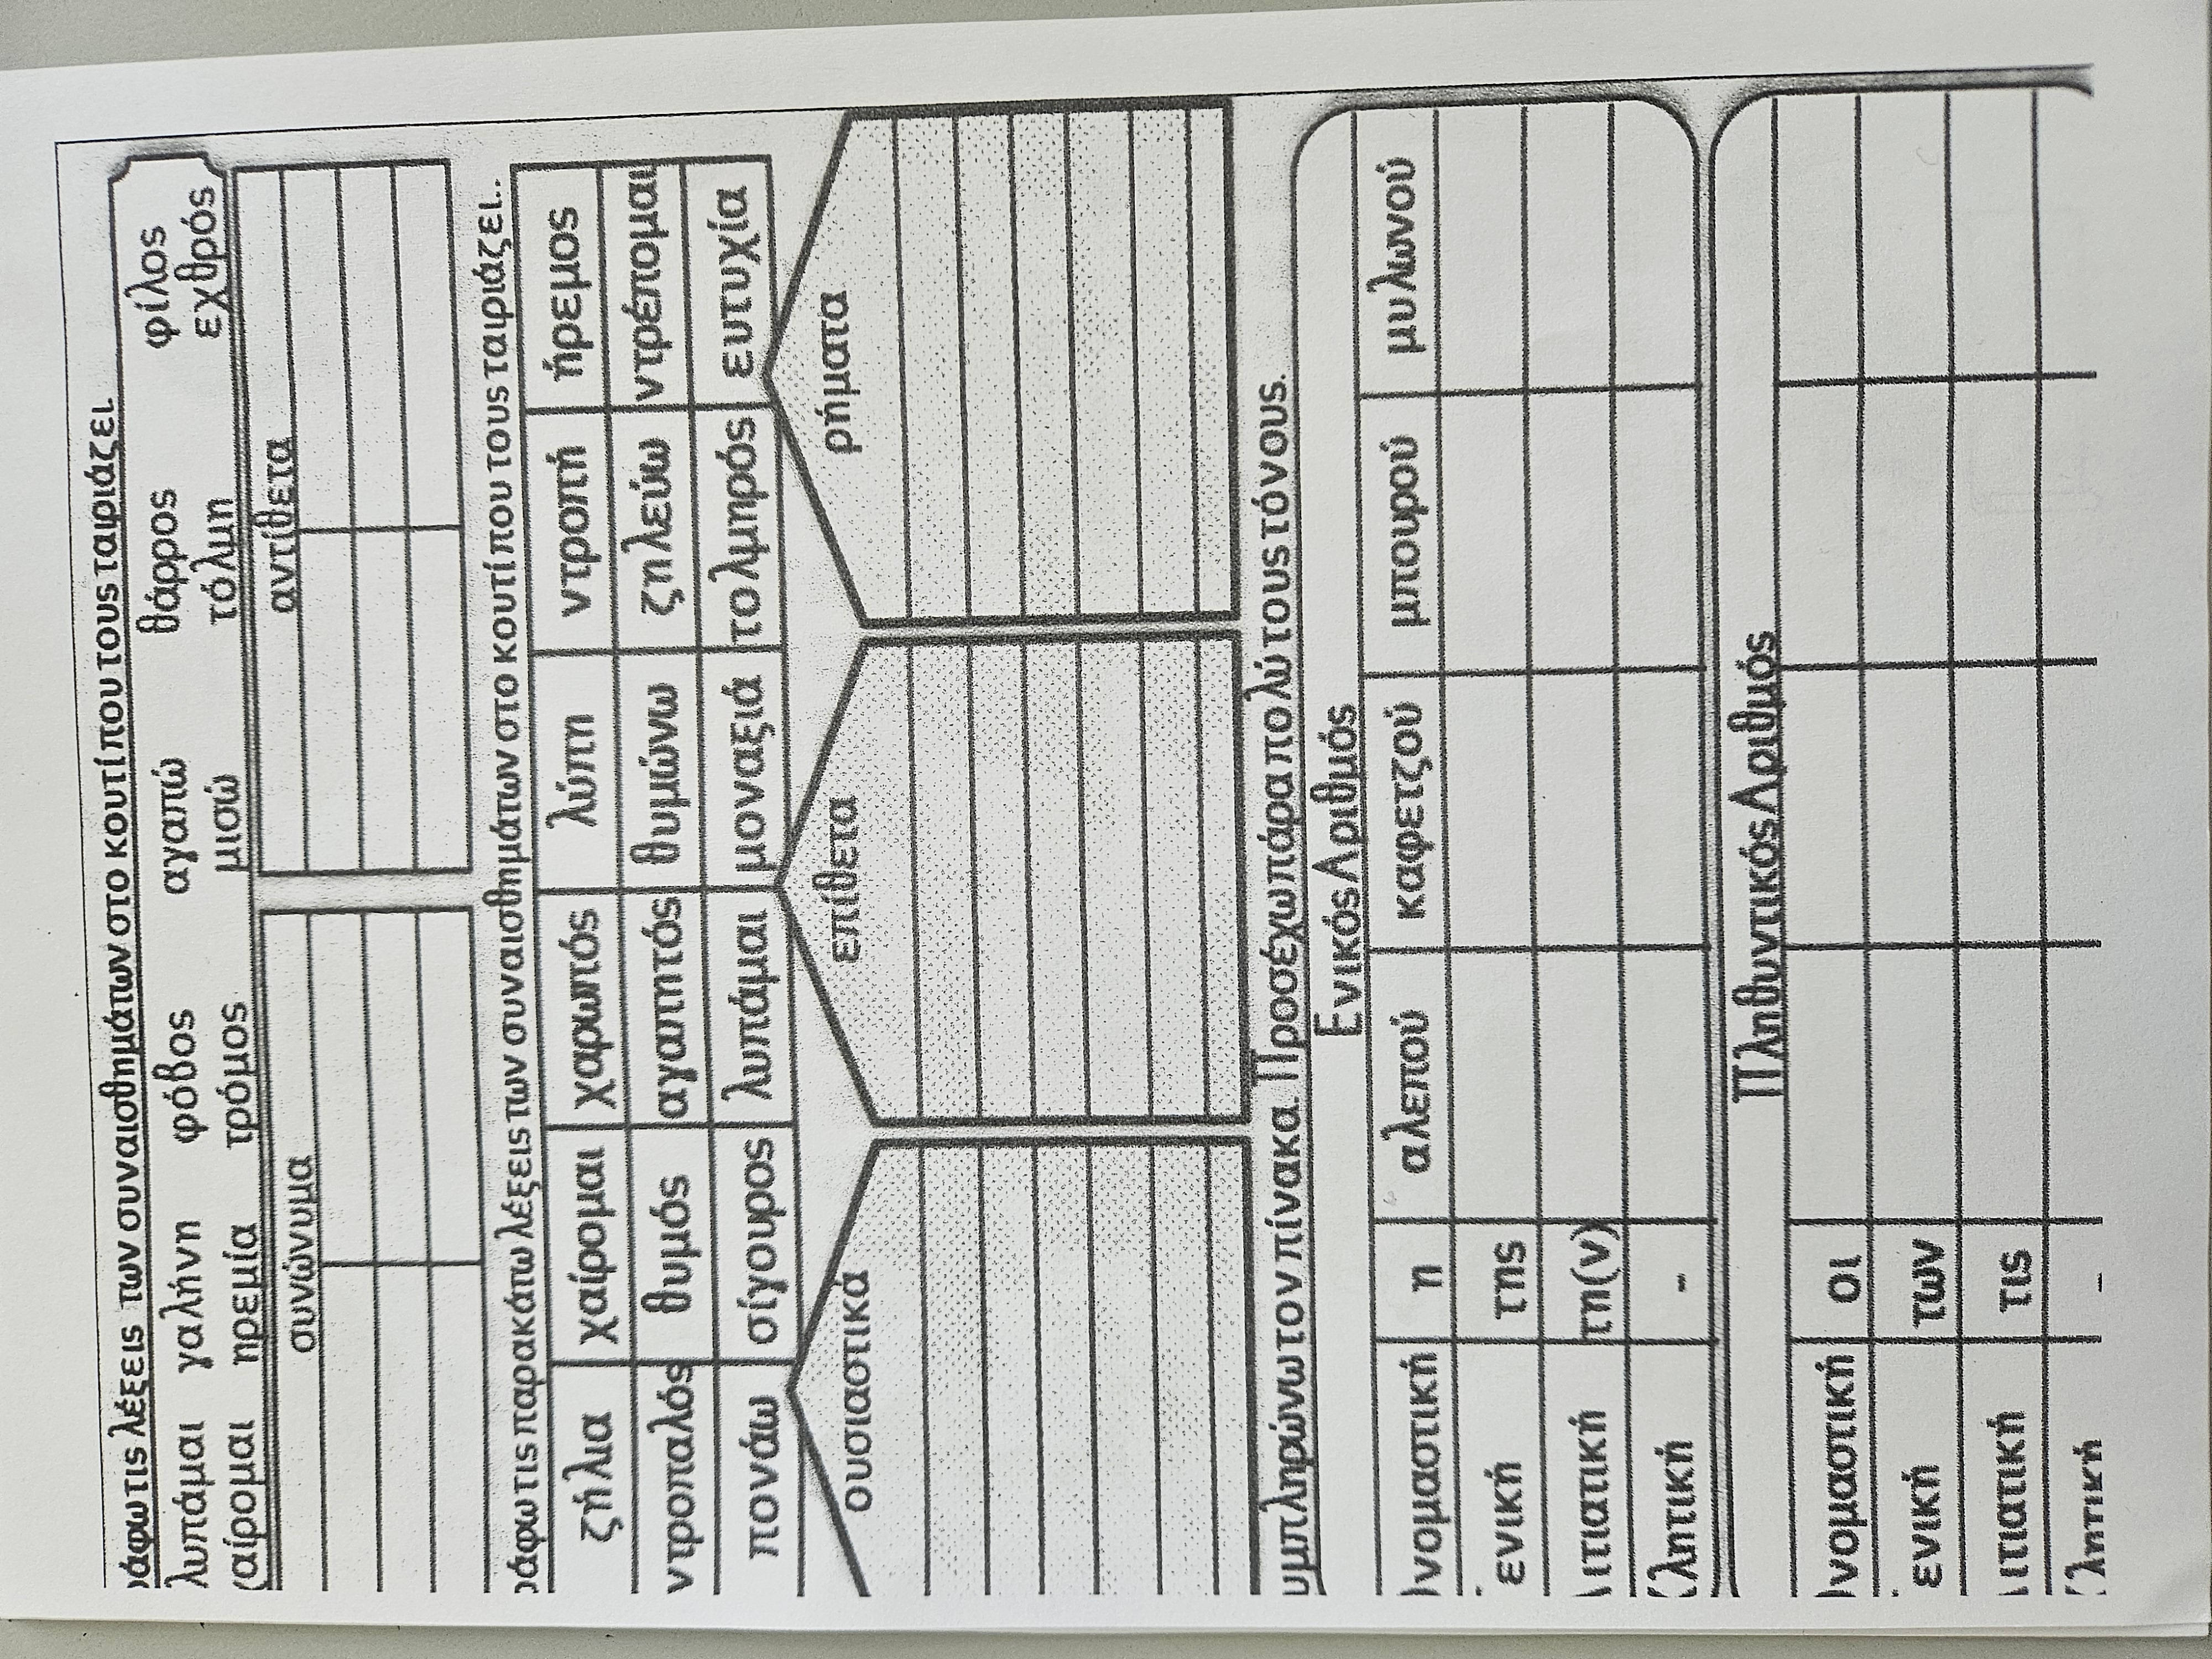 ράφω τις λέξεις των συναισθημάτων στο κουτί που τους ταιριάζει.
λυπάμαι γαλήνη φόβος αγαπώ θάρρος φίλος
χαίρομαι ηρεμία τρόμος μισώ τόλμη εχθρός
συνώνυμα αντίθετα
ράφω τις παρακάτω λέξεις των συναισθημάτων στο κουτί που τους ταιριάζει..
ζήλια χαίρομαι χαρωπός λύπη ντροπή ήρεμος
ντροπαλός θυμός αγαπητός θυμώνω ζηλεύω ντρέπομαι
πονάω σίγουρος λυπάμαι μοναξιά τολμηρός ευτυχία
ουσιαστικά επίθετα ρήματα
υμπληρώνω τον πίνακα. Προσέχω πάρα πολύ τους τόνους.
Ενικός Αριθμός
νομαστική η αλεπού καφετζού μπουρού μυλωνού
ενική της
ιτιατική τη(ν)
λητική -
Πληθυντικός Αριθμός
νομαστική οι
ενική των
ιτιατική τις
λητική -